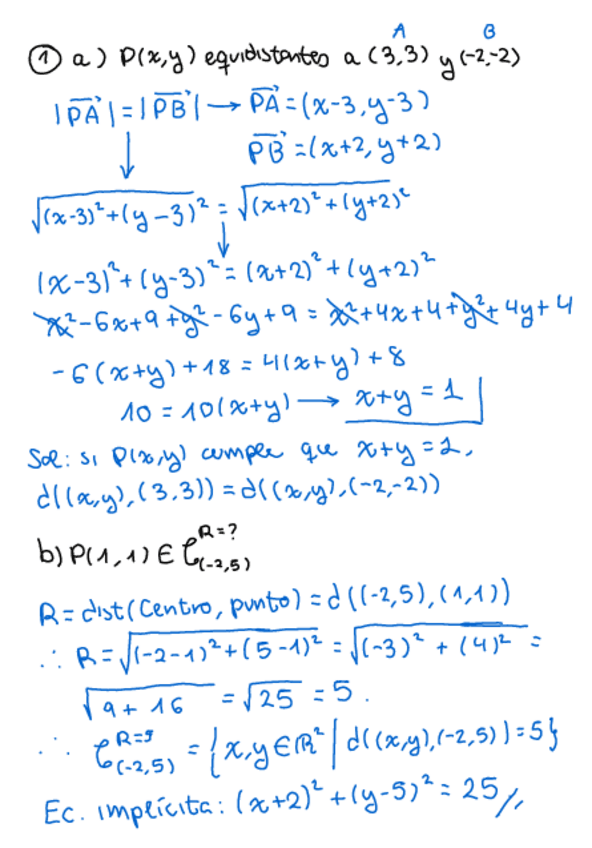 A B
① a) P(x,y) equidistantes a (3,3) y (-2,-2)
|PA⃗| = |PB⃗| → PA⃗ = (x-3, y-3)
PB⃗ = (x+2, y+2)
√((x-3)²+(y-3)²) = √((x+2)²+(y+2)²)
(x-3)²+(y-3)² = (x+2)²+(y+2)²
x²-6x+9+y²-6y+9 = x²+4x+4+y²+4y+4
-6(x+y)+18 = 4(x+y)+8
10 = 10(x+y) → x+y = 1
Sol: si P(x,y) cumple que x+y=1,
d((x,y),(3,3)) = d((x,y),(-2,-2))
b) P(1,1) ∈ C^{R=?}_{(-2,5)}
R = dist(Centro, punto) = d((-2,5),(1,1))
∴ R = √((-2-1)²+(5-1)²) = √((-3)²+(4)²) =
√(9+16) = √25 = 5.
∴ C^{R=5}_{(-2,5)} = {x,y ∈ ℝ² | d((x,y),(-2,5))=5}
Ec. implícita: (x+2)²+(y-5)² = 25//